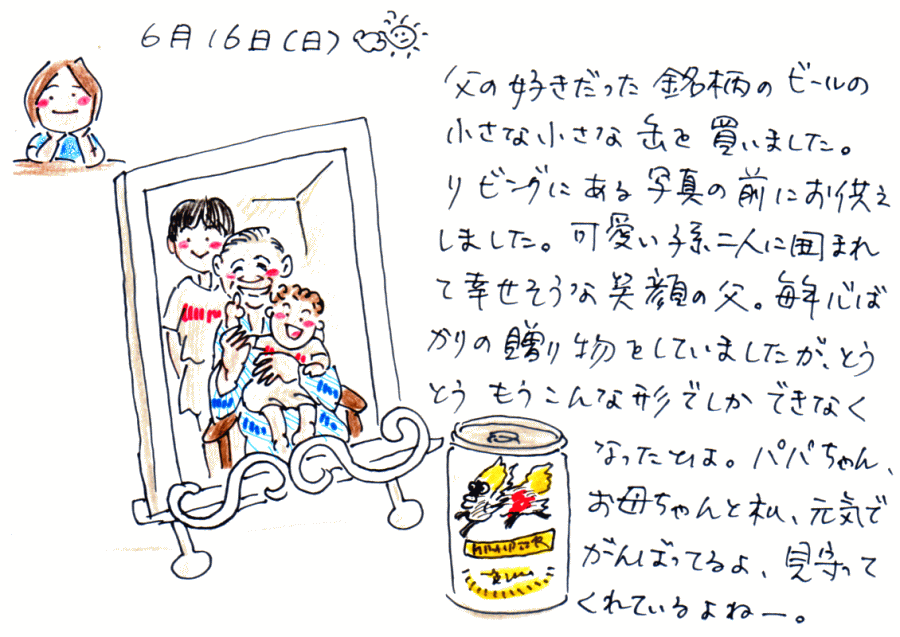 6月16日(日)
父の好きだった銘柄のビールの
小さな小さな缶を買いました。
リビングにある写真の前にお供え
しました。可愛い孫二人に囲まれ
て幸せそうな笑顔の父。毎年心ば
かりの贈り物をしていましたが、とう
とうもうこんな形でしかできなく
なったよ。パパちゃん、
お母ちゃんと私、元気で
がんばってるよ、見守って
くれているよねー。